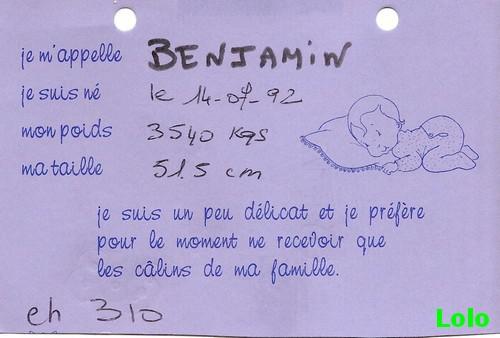 je m'appelle BENJAMIN
je suis né le 14-07-92
mon poids 3540 Kgs
ma taille 51.5 cm
je suis un peu délicat et je préfère
pour le moment ne recevoir que
les câlins de ma famille.
eh 310
Lolo